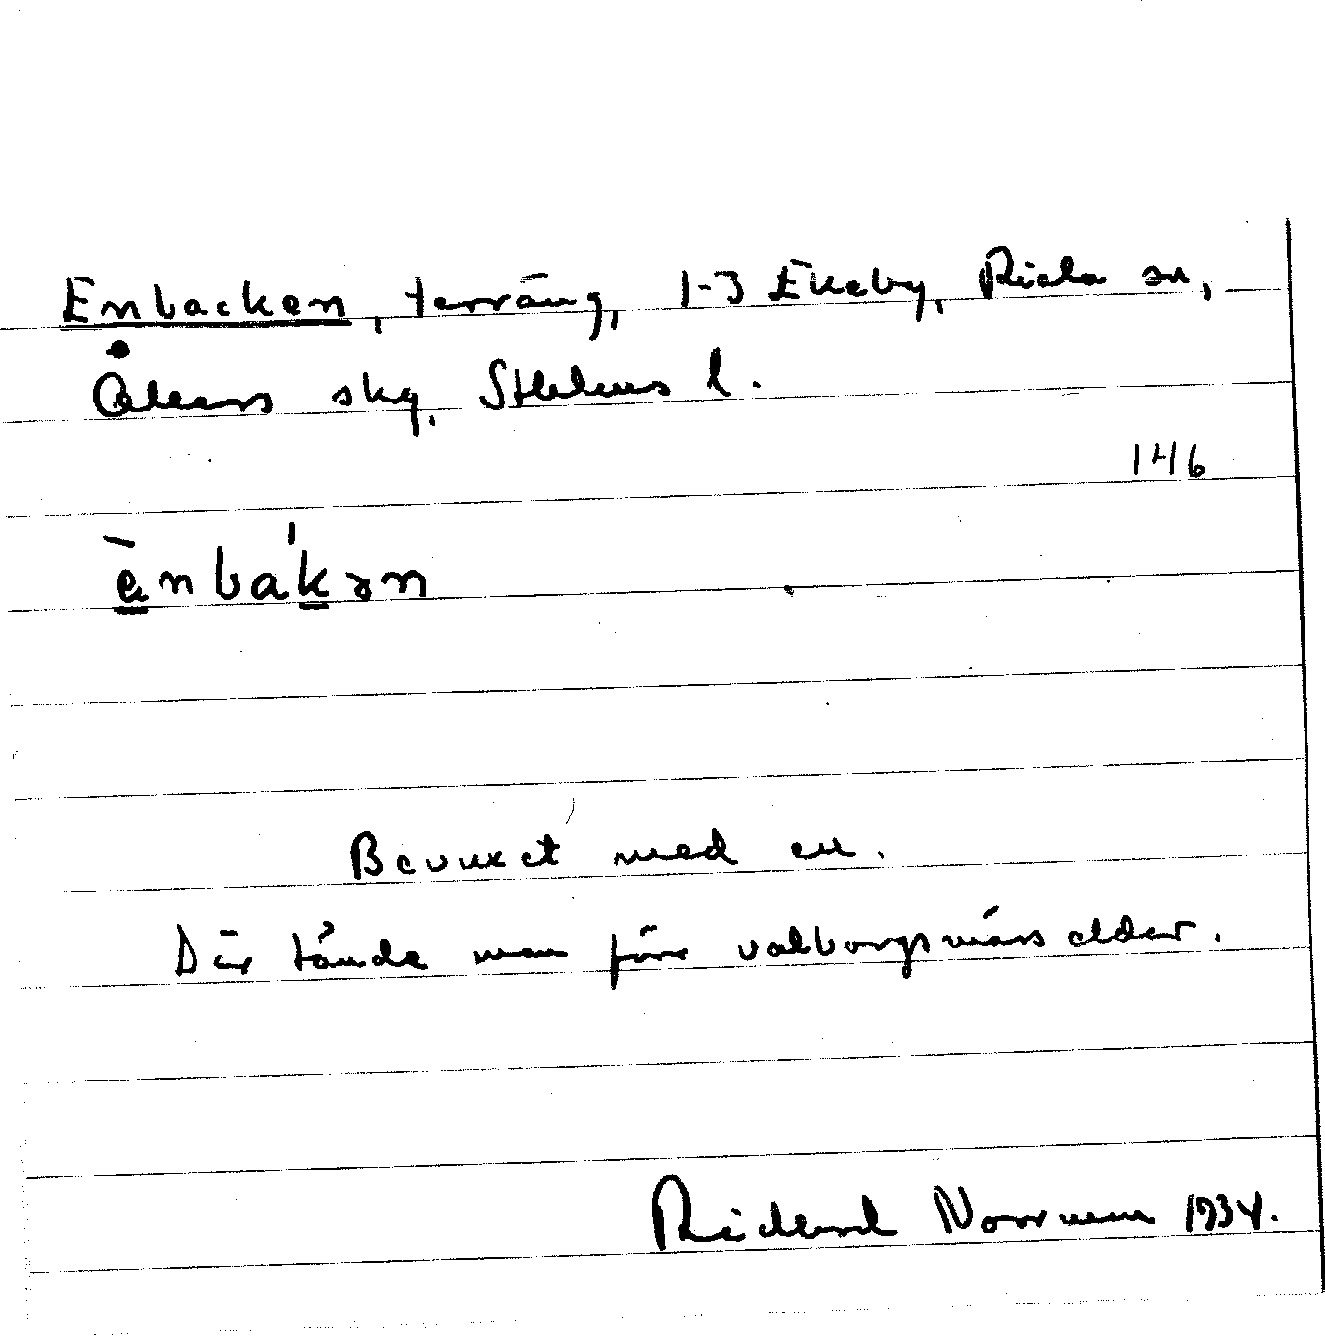 Enbacken, terräng, 1-3 Ekeby, Riala sn,
Åkers skg. Sthlms l.
146
ènbákən
Bevuxet med en.
Där tände man förr valborgsmässeldar.
Rickard Norrman 1934.